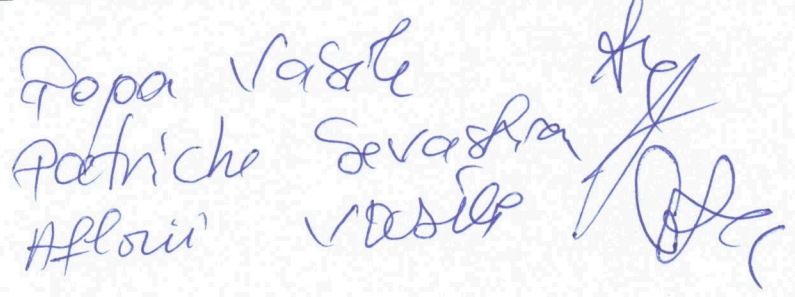 Popa Vasile
Patriche Sevastian
Aflorii Vasile